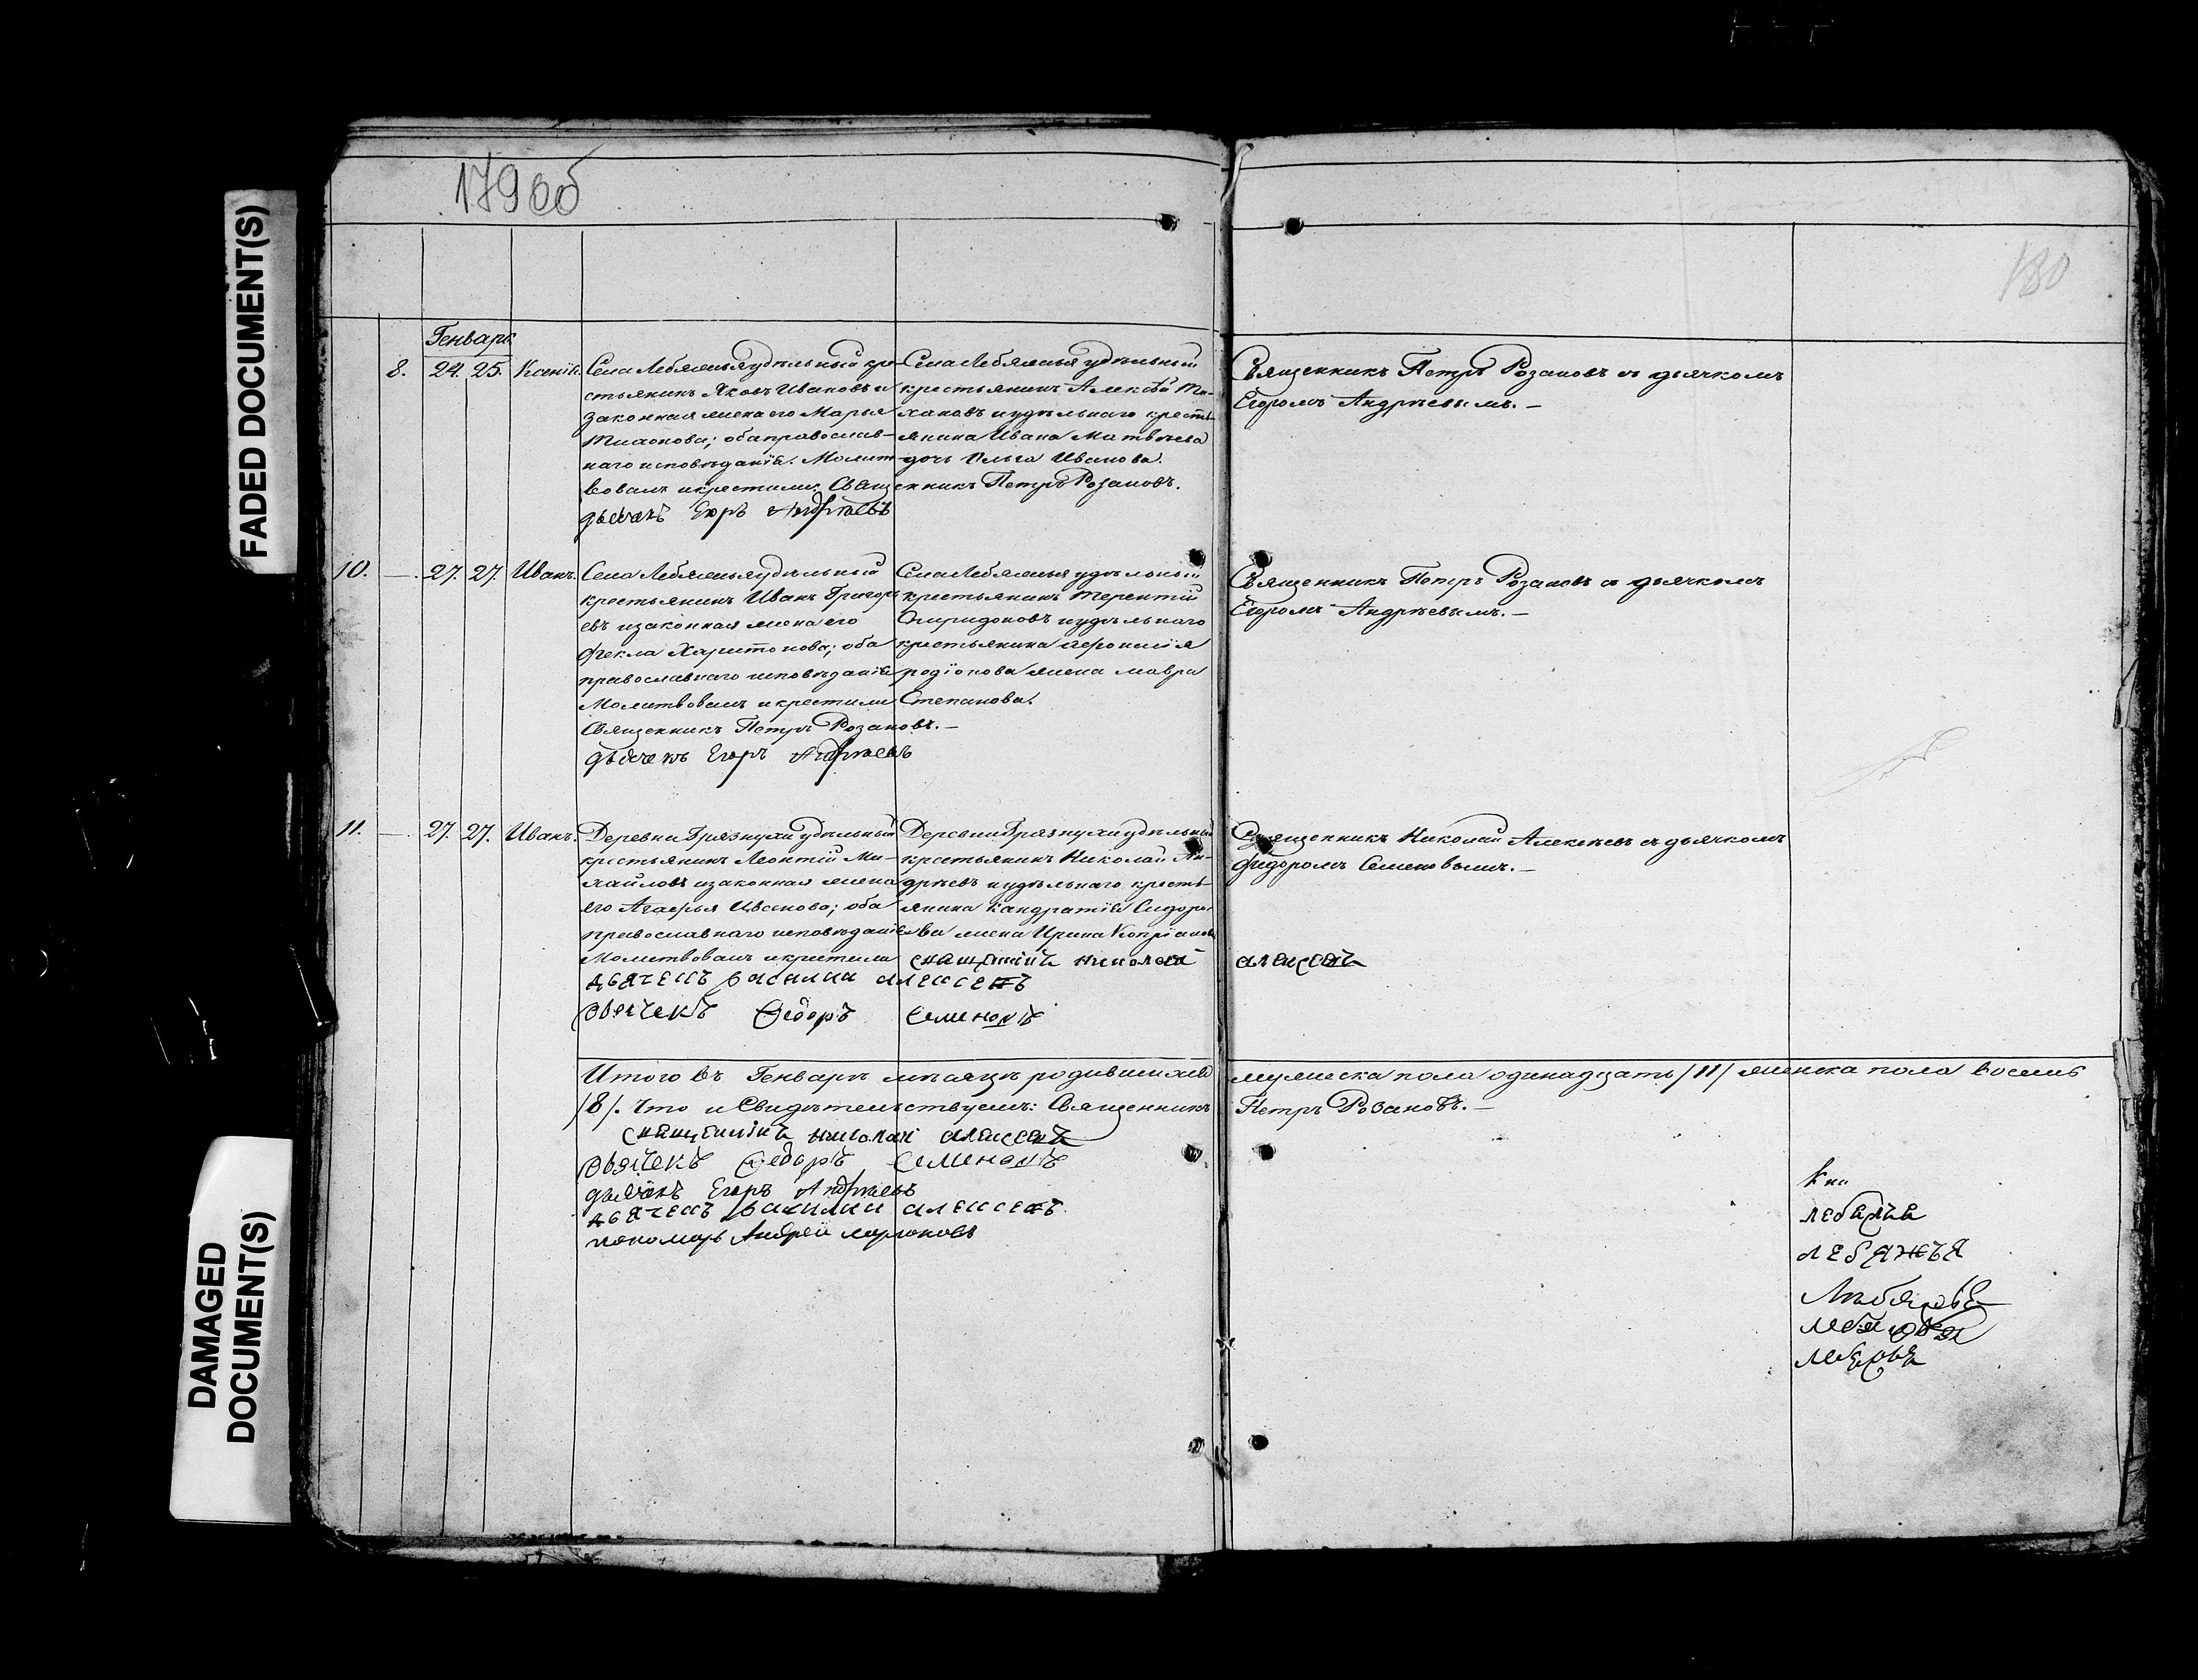 FADED DOCUMENT(S)
DAMAGED
DOCUMENT(S)
179 об
180
Генварь
8. 24. 25. Ксенія.
Села Лебяжья удѣльный кре-
стьянинъ Яковъ Ивановъ и
законная жена его Марья
Тихонова; оба православ-
наго исповѣданія. Молит-
вовалъ и крестилъ Священникъ Петръ Розановъ.
дьячекъ Егоръ Андреевъ
Села Лебяжья удѣльный
крестьянинъ Алексѣй Ти-
хановъ и удѣльнаго кресть-
янина Ивана Матвѣева
дочь Ольга Иванова.
Священникъ Петръ Розановъ съ дьячкомъ
Егоромъ Андрѣевымъ.—
10. — 27. 27. Иванъ.
Села Лебяжья удѣльный
крестьянинъ Иванъ Григорь
евъ и законная жена его
Фекла Харитонова; оба
православнаго исповѣданія
Молитвовалъ и крестили
Священникъ Петръ Розановъ.—
дьячекъ Егоръ Андреевъ
Села Лебяжья удѣльный
крестьянинъ Терентій
Спиридоновъ и удѣльнаго
крестьянина
родіонова жена мавра
Степанова.
Священникъ Петръ Розановъ съ дьячкомъ
Егоромъ Андрѣевымъ.—
11. — 27. 27. Иванъ.
Деревни Грязнухи удѣльный
крестьянинъ Леонтій Ми-
хайловъ и законная жена
его Агафья Иванова; оба
православнаго исповѣданія
Молитвовалъ и крестили
Деревни Грязнухи удѣльный
крестьянинъ Николай Ан-
дрѣевъ и удѣльнаго кресть-
янина Кандратія Сидоро-
ва жена Ирина Кипріанова
священникъ николай алексеевъ
дьячекъ василий алексеевъ
дьячекъ Федоръ Семеновъ
Священникъ Николай Алексѣевъ съ дьячкомъ
Федоромъ Семеновымъ.—
Итого въ Генварѣ мѣсяцѣ родившихся мужеска пола одинадцать /11/ женска пола восемь
/8/. Что и Свидѣтельствуемъ: Священникъ Петръ Розановъ.—
священникъ николай алексеевъ
дьячекъ Федоръ Семеновъ
дьячекъ Егоръ Андреевъ
дьячекъ василий алексеевъ
пономарь Андрей
лебяжья